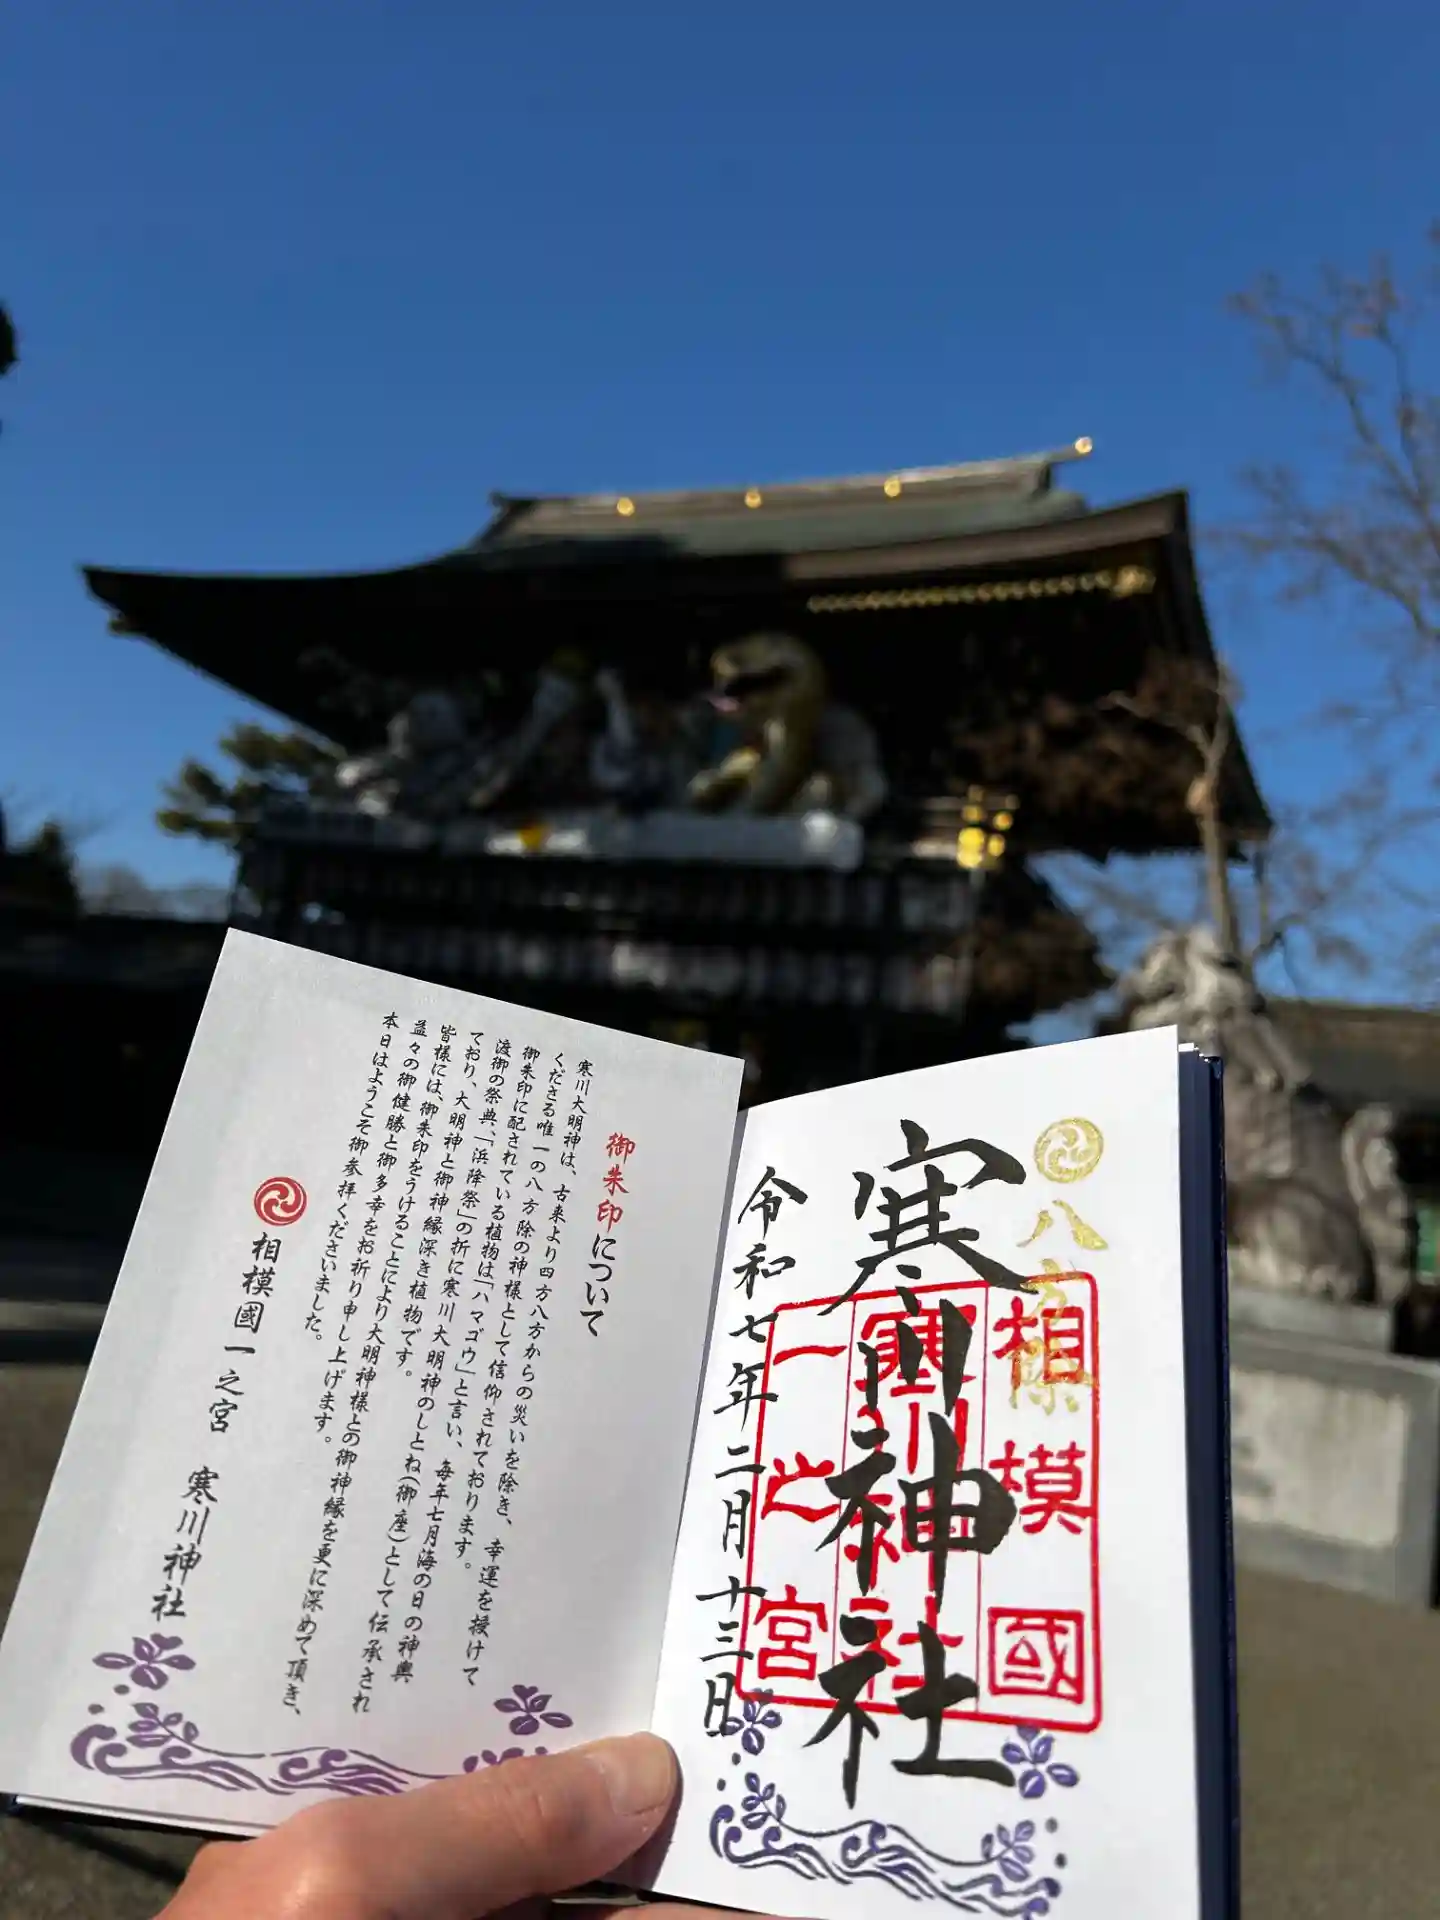 八方除
寒川神社
相模國
寒川神社
一之宮
令和七年二月十三日
御朱印について
寒川大明神は、古来より四方八方からの災いを除き、幸運を授けて
くださる唯一の八方除の神様として信仰されております。
御朱印に配されている植物は「ハマゴウ」と言い、毎年七月海の日の神輿
渡御の祭典、「浜降祭」の折に寒川大明神のしとね(御座)として伝承され
ており、大明神と御神縁深き植物です。
皆様には、御朱印をうけることにより大明神様との御神縁を更に深めて頂き、
益々の御健勝と御多幸をお祈り申し上げます。
本日はようこそ御参拝くださいました。
相模國一之宮 寒川神社